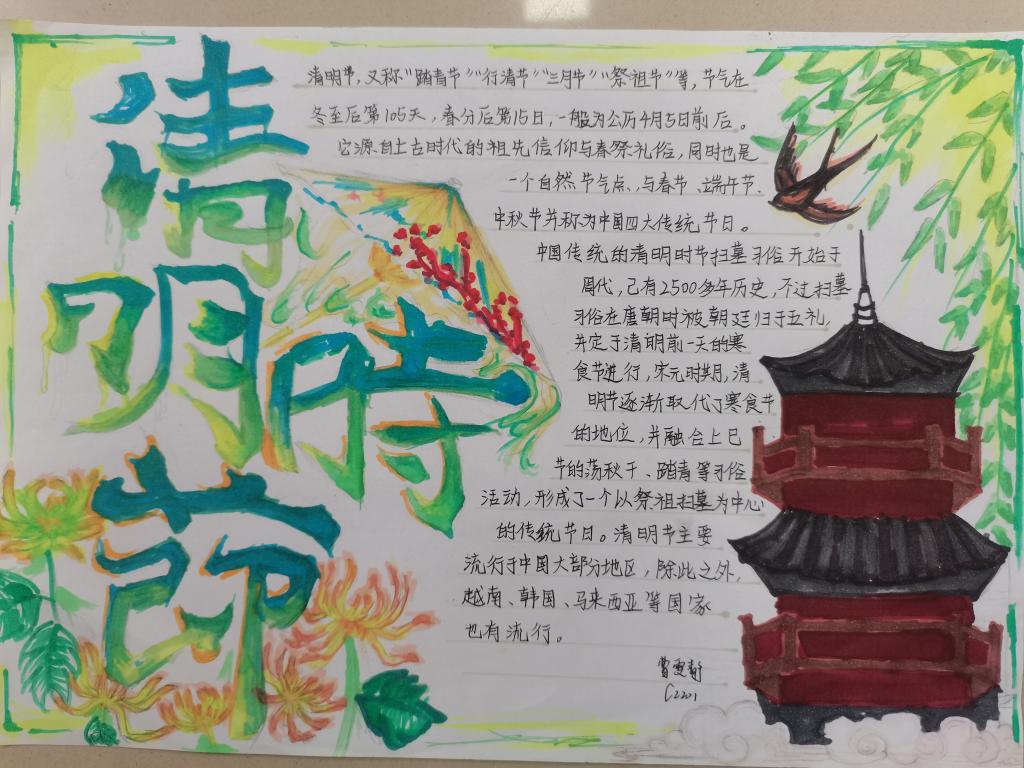 清明时节
清明节，又称“踏青节”“行清节”“三月节”“祭祖节”等，节气在
冬至后第105天，春分后第15日，一般为公历4月5日前后。
它源自上古时代的祖先信仰与春祭礼俗，同时也是
一个自然节气点、与春节、端午节、
中秋节并称为中国四大传统节日。
中国传统的清明时节扫墓习俗开始于
周代，已有2500多年历史，不过扫墓
习俗在唐朝时被朝廷归于五礼，
并定于清明前一天的寒
食节进行，宋元时期，清
明节逐渐取代了寒食节
的地位，并融合上巳
节的荡秋千、踏青等习俗
活动，形成了一个以祭祖扫墓为中心
的传统节日。清明节主要
流行于中国大部分地区，除此之外，
越南、韩国、马来西亚等国家
也有流行。
C2201